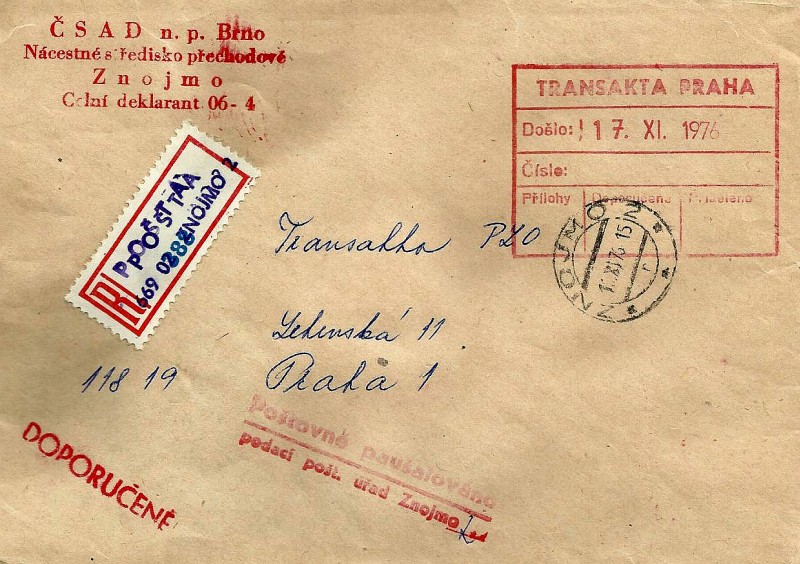 ČSAD n. p. Brno
Nácestné středisko přechodové
Znojmo
Celní deklarant 06-4
TRANSAKTA PRAHA
Došlo: 17. XI. 1976
Číslo:
Přílohy Doporučeně Přiděleno
R
POŠTA
ZNOJMO 2
669 02
ZNOJMO 2
XI. 76 15
r
Transakta PZO
Letenská 11
118 19 Praha 1
DOPORUČENĚ
Poštovné paušalováno
podací pošt. úřad Znojmo 2